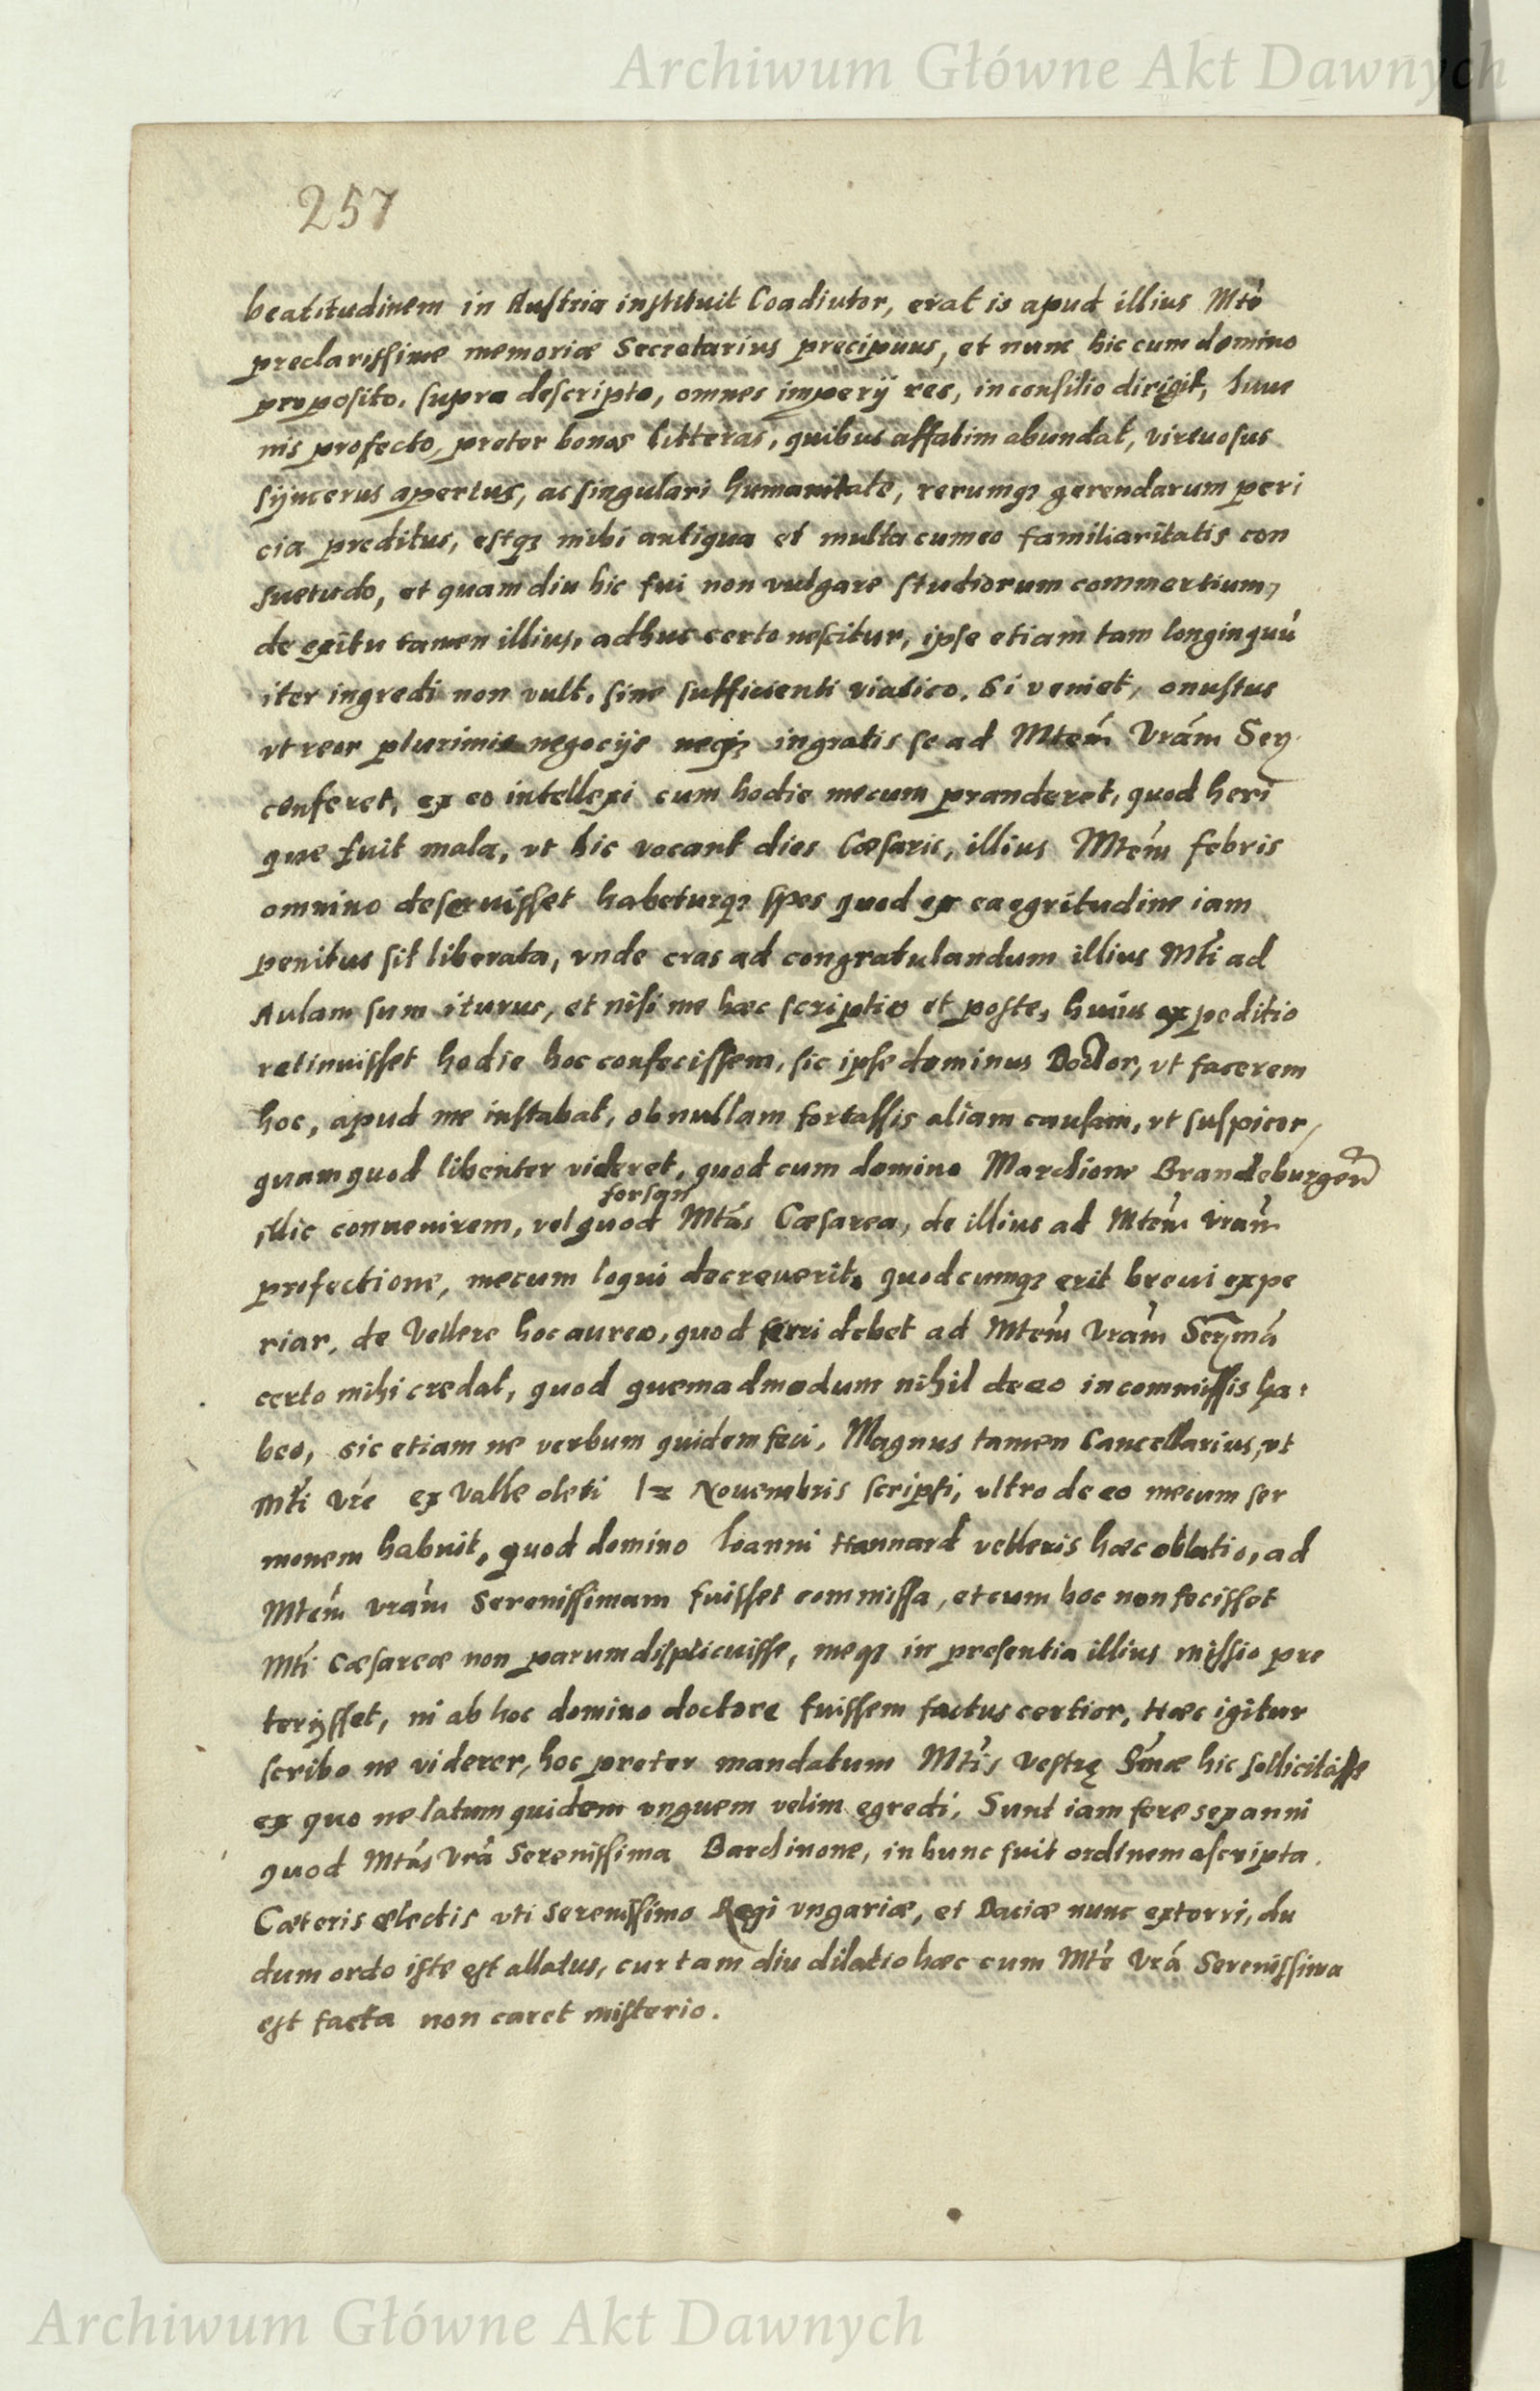 Archiwum Główne Akt Dawnych
257
beatitudinem in Austria instituit Coadiutor, erat is apud illius Mte
preclarissime memoriæ Secretarius precipuus, et nunc hic cum domino
proposito, supra descripto, omnes imperij res, in consilio dirigit, Iuue
nis profecto, preter bonas litteras, quibus affatim abundat, virtuosus
syncerus apertus, ac singulari humanitate, rerumqȝ gerendarum peri
cia preditus, estqȝ mihi antiqua et multa cum eo familiaritatis con
suetudo, et quam diu hic fui non vulgare studiorum commertium,
de exitu tamen illius, adhuc certo nescitur, ipse etiam tam longinquū
iter ingredi non vult, sine sufficienti viatico. Si veniet, onustus
vt reor plurimis negocijs neqȝ ingratis se ad Mtem Vram Ser.
conferet, ex eo intellexi cum hodie mecum pranderet, quod heri
que fuit mala, vt hic vocant dies Cæsaris, illius Mtem febris
omnino deseruisset habeturqȝ spes quod ex ea egritudine iam
penitus sit liberata, vnde cras ad congratulandum illius Mti ad
Aulam sum iturus, et nisi me hæc scriptio et poste, huius expeditio
retinuisset hodie hoc confecissem, sic ipse dominus Doctor, vt facerem
hoc, apud me instabat, ob nullam fortassis aliam causam, vt suspicor,
quam quod libenter videret, quod cum domino Marchione Brandeburgeñ
forsan
illic conuenirem, vel quod Mtas Cæsarea, de illius ad Mtem vram
profectione, mecum loqui decreuerit. quodcunqȝ erit breui expe
riar, de Vellere hoc aureo, quod ferri debet ad Mtem Vram Sermā
certo mihi credat, quod quemadmodum nihil de eo in commissis ha:
beo, sic etiam ne verbum quidem feci, Magnus tamen Cancellarius, vt
Mti Vre ex Valle oleti 12 Nouembris scripti, vltro de eo mecum ser
monem habuit, quod domino Ioanni Hannard velleris hæc oblatio, ad
Mtem vram Serenissimam fuisset commissa, et cum hoc non fecisset
Mti Cæsareæ non parum displicuisse, meqȝ in presentia illius missio pre
terijsset, ni ab hoc domino doctore fuissem factus certior, Hæc igitur
scribo ne viderer, hoc preter mandatum Mtis Vestrę Smæ hic sollicitasse
ex quo ne latum quidem vnguem velim egredi, Sunt iam fere sex anni
quod Mtas Vra Serenissima Barchinone, in hunc fuit ordinem ascripta.
Cæteris electis vti Serenissimo Regi vngariæ, et Daciæ nunc extorri, du
dum ordo iste est allatus, cur tam diu dilatio hæc cum Mte Vra Serenissima
est facta non caret misterio.
Archiwum Główne Akt Dawnych